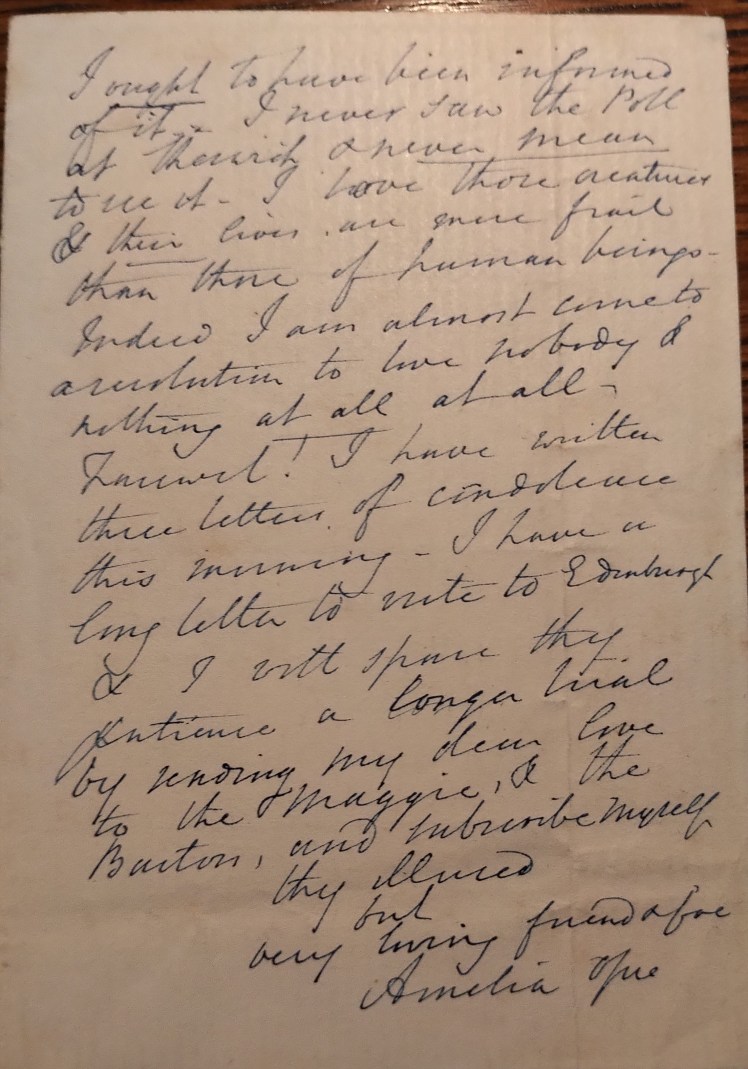 I ought to have been informed
of it - I never saw the Poll
at & never mean
to see it - I love those creatures
& their lives are more frail
than those of human beings -
Indeed I am almost come to
a resolution to love nobody &
nothing at all at all -
Farewel! I have written
three letters of condolence
this morning - I have a
long letter to write to Edinburgh
& I will spare thy
patience a longer trial
by sending my dear love
to the Maggie, & the
Barton, and subscribe myself
thy illused
but
very loving friend
Amelia Opie